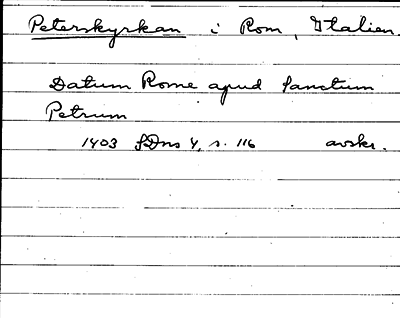 Peterskyrkan i Rom, Italien.
Datum Rome apud Sanctum
Petrum
1403 SDns 4, s. 116 avskr.